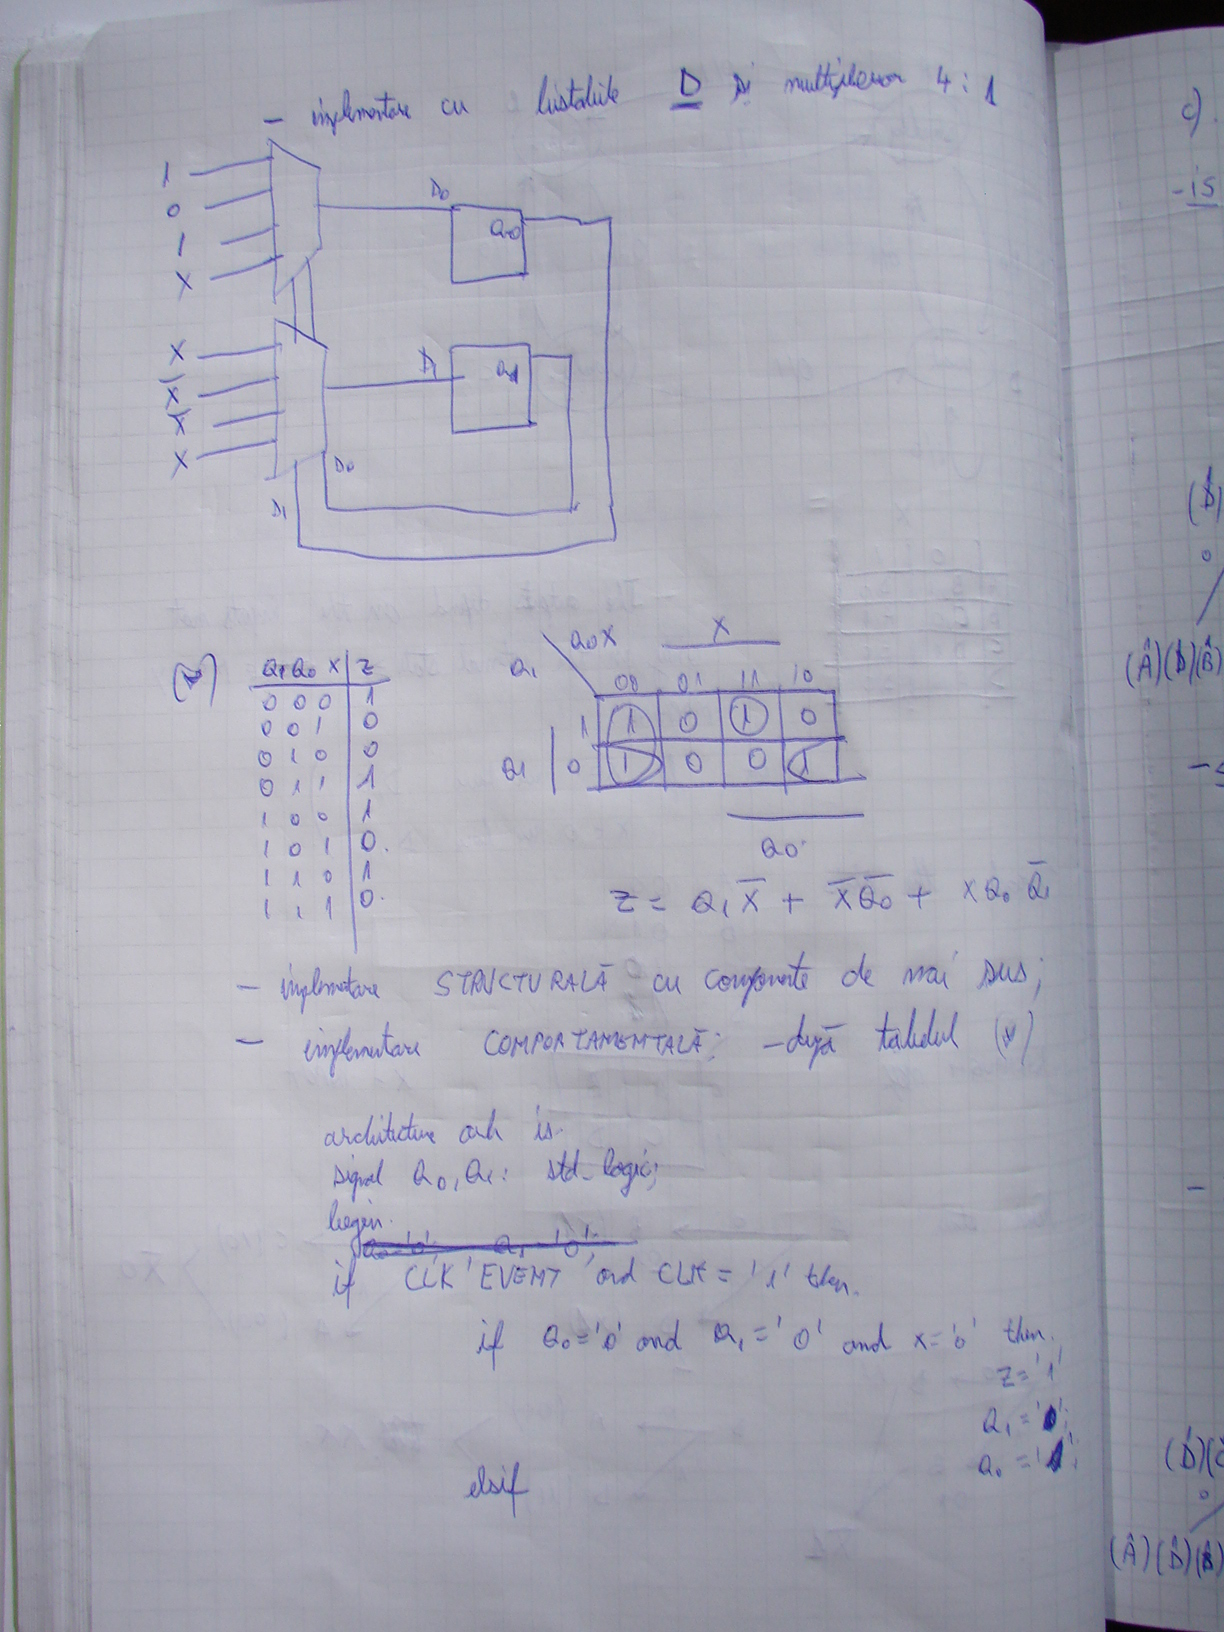 - implementare cu bistabile D și multiplexor 4:1
1
0
1
X
D0
Q0
X
X̅
X̅
X
D1
Q1
D0
D1
(*)
Q1 Q0 X | Z
0 0 0 | 1
0 0 1 | 0
0 1 0 | 0
0 1 1 | 1
1 0 0 | 1
1 0 1 | 0.
1 1 0 | 1
1 1 1 | 0.
Q0X X
Q1 00 01 11 10
1 1 0 1 0
Q1 0 1 0 0 1
Q0
Z = Q1 X̅ + X̅ Q̅0 + X Q0 Q̅1
- implementare STRUCTURALĂ cu componente de mai sus;
- implementare COMPORTAMENTALĂ: - după tabelul (*)
architecture arh is
signal Q0, Q1: std_logic;
begin
if CLK'EVENT and CLK = '1' then.
if Q0='0' and Q1='0' and x='0' then.
Z='1'
Q1='0';
Q0='1';
elsif
c).
-is
(Â)(B)(B̂)
0
(Â)(B̂)(B̂)